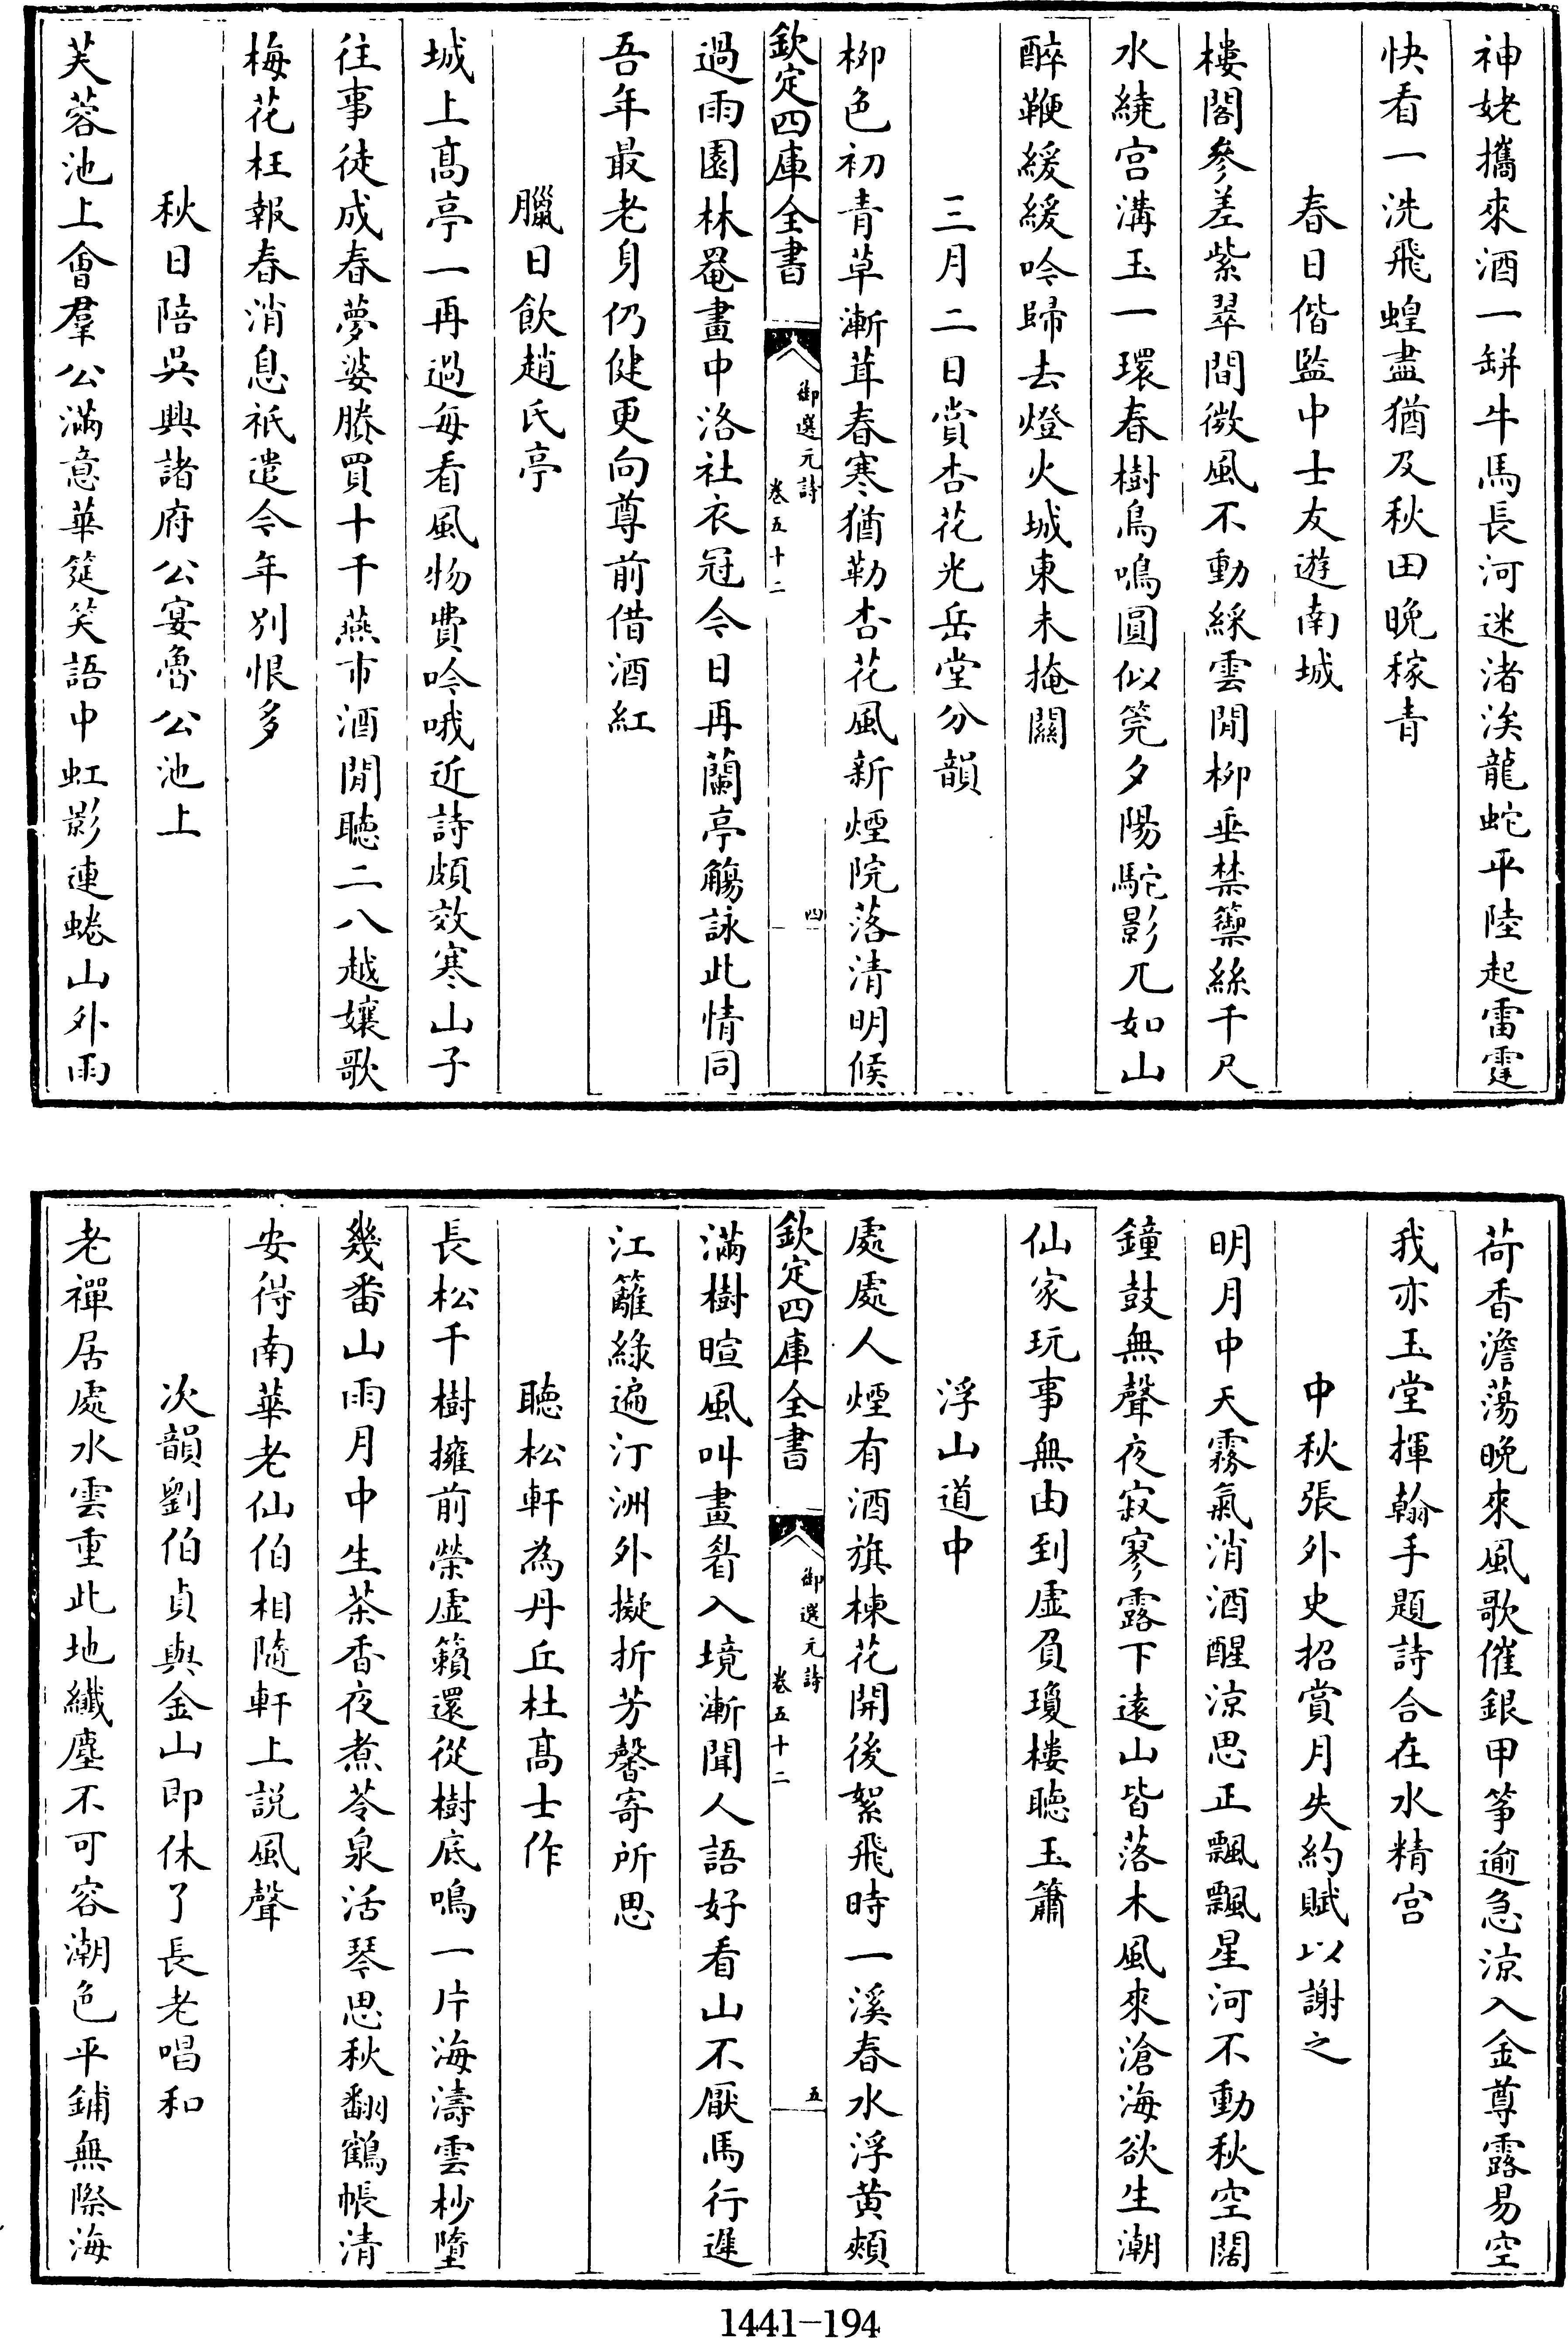 神姥攜來酒一缾牛馬長河迷渚涘龍蛇平陸起雷霆
快看一洗飛蝗盡猶及秋田晚稼青
春日偕監中士友遊南城
樓閣參差紫翠間微風不動綵雲閒柳垂禁籞絲千尺
水繞宫溝玉一環春樹鳥鳴圓似筦夕陽駝影兀如山
醉鞭緩緩吟歸去燈火城東未掩關
三月二日賞杏花光岳堂分韻
柳色初青草漸茸春寒猶勒杏花風新煙院落清明候
欽定四庫全書
御選元詩
卷五十二
四
過雨園林罨畫中洛社衣冠今日再蘭亭觴詠此情同
吾年最老身仍健更向尊前借酒紅
臘日飲趙氏亭
城上髙亭一再過每看風物費吟哦近詩頗效寒山子
往事徒成春夢婆賸買十千燕市酒閒聴二八越孃歌
梅花枉報春消息祇遣今年别恨多
秋日陪吳興諸府公宴魯公池上
芙蓉池上會羣公滿意華筵笑語中虹影連蜷山外雨
荷香澹蕩晚來風歌催銀甲筝逾急涼入金尊露易空
我亦玉堂揮翰手題詩合在水精宫
中秋張外史招賞月失約賦以謝之
明月中天霧氣消酒醒涼思正飄飄星河不動秋空闊
鐘鼓無聲夜寂寥露下遠山皆落木風來滄海欲生潮
仙家玩事無由到虛負瓊樓聴玉簫
浮山道中
處處人煙有酒旗楝花開後絮飛時一溪春水浮黄頰
欽定四庫全書
御選元詩
卷五十二
五
滿樹暄風叫畫眉入境漸聞人語好看山不厭馬行遲
江蘺綠遍汀洲外擬折芳馨寄所思
聴松軒為丹丘杜髙士作
長松千樹擁前榮虛籟還從樹底鳴一片海濤雲杪墮
幾番山雨月中生茶香夜煮苓泉活琴思秋翻鶴帳清
安得南華老仙伯相隨軒上説風聲
次韻劉伯貞與金山即休了長老唱和
老禪居處水雲重此地纎塵不可容潮色平鋪無際海
1441-194